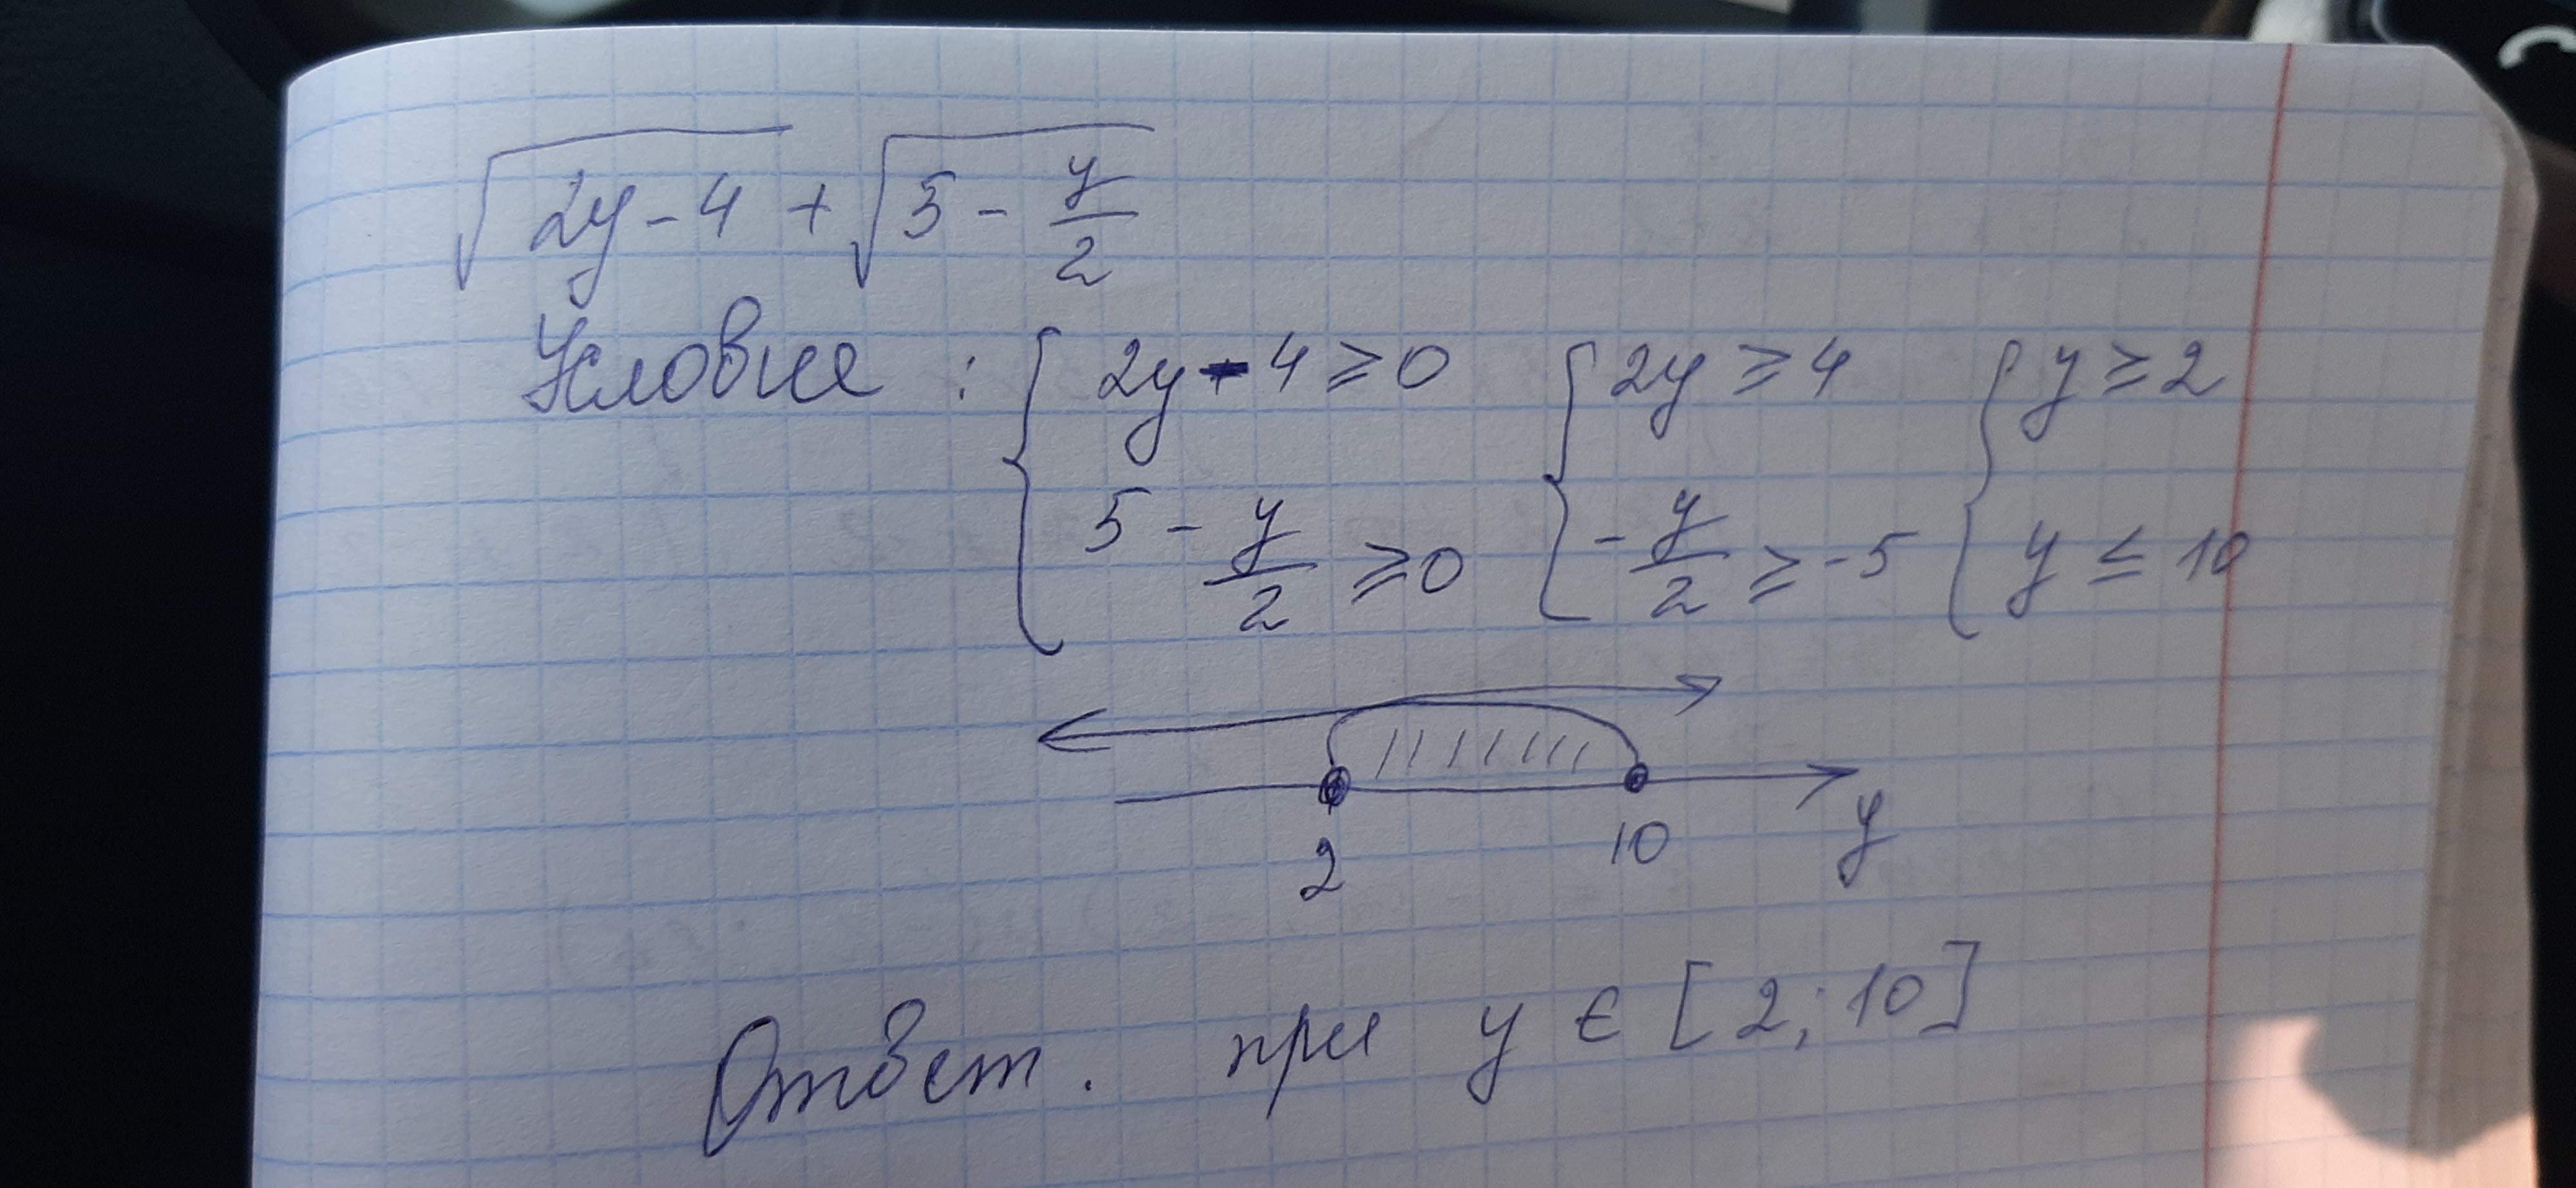 √(2y-4) + √(5 - y/2)
Условие : { 2y - 4 ≥ 0 { 2y ≥ 4 { y ≥ 2
5 - y/2 ≥ 0 - y/2 ≥ -5 y ≤ 10
2 10 y
Ответ. при y ∈ [2; 10]